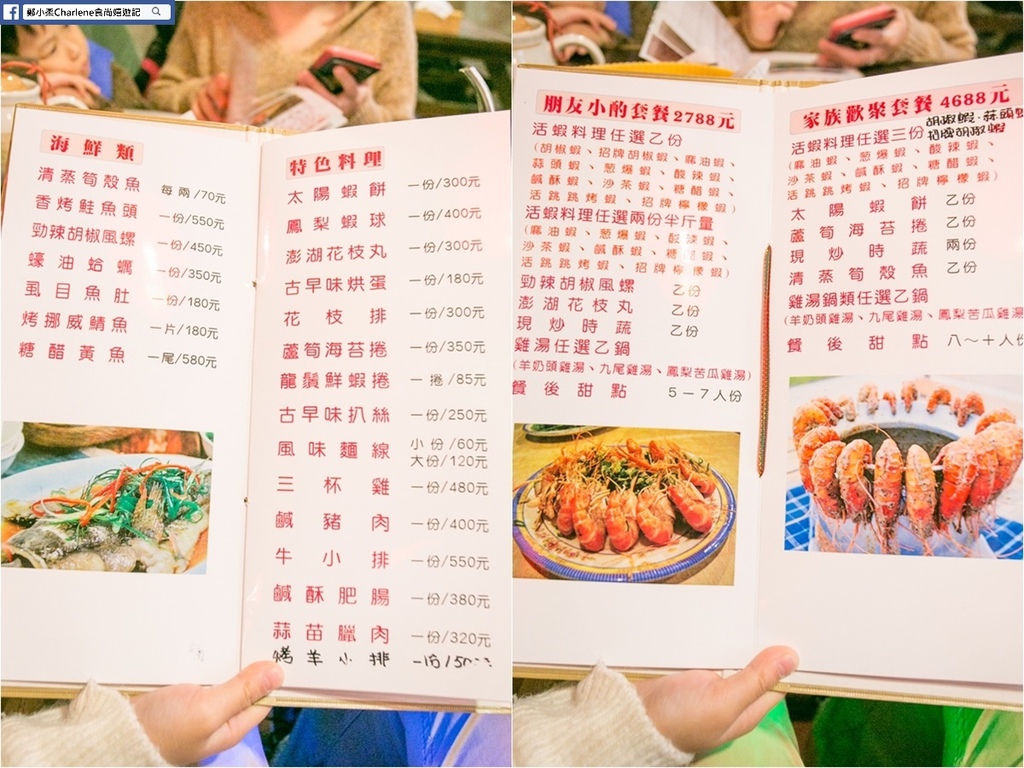 鄭小柔Charlene食尚嬉遊記
海鮮類
清蒸筍殼魚 每兩/70元
香烤鮭魚頭 一份/550元
勁辣胡椒風螺 一份/450元
蠔油蛤蠣 一份/350元
虱目魚肚 一份/180元
烤挪威鯖魚 一片/180元
糖醋黃魚 一尾/580元
特色料理
太陽蝦餅 一份/300元
鳳梨蝦球 一份/400元
澎湖花枝丸 一份/300元
古早味烘蛋 一份/180元
花枝排 一份/300元
蘆筍海苔捲 一份/350元
龍鬚鮮蝦捲 一捲/85元
古早味扒絲 一份/250元
風味麵線 小份/60元
大份/120元
三杯雞 一份/480元
鹹豬肉 一份/400元
牛小排 一份/550元
鹹酥肥腸 一份/380元
蒜苗臘肉 一份/320元
烤羊小排 一份/150
朋友小酌套餐2788元
活蝦料理任選乙份
(胡椒蝦、招牌胡椒蝦、麻油蝦、
蒜頭蝦、蔥爆蝦、酸辣蝦、
鹹酥蝦、沙茶蝦、糖醋蝦、
活跳跳烤蝦、招牌檸檬蝦)
活蝦料理任選兩份半斤量
(麻油蝦、蔥爆蝦、酸辣蝦、
沙茶蝦、鹹酥蝦、糖醋蝦、
活跳跳烤蝦、招牌檸檬蝦)
勁辣胡椒風螺 乙份
澎湖花枝丸 乙份
現炒時蔬 乙份
雞湯任選乙鍋
(羊奶頭雞湯、九尾雞湯、鳳梨苦瓜雞湯)
餐後甜點 5－7人份
家族歡聚套餐4688元
胡椒蝦、蒜頭蝦
招牌胡椒蝦
活蝦料理任選三份
(麻油蝦、蔥爆蝦、酸辣蝦、
沙茶蝦、鹹酥蝦、糖醋蝦、
活跳跳烤蝦、招牌檸檬蝦)
太陽蝦餅 乙份
蘆筍海苔捲 乙份
現炒時蔬 兩份
清蒸筍殼魚 乙份
雞湯鍋類任選乙鍋
(羊奶頭雞湯、九尾雞湯、鳳梨苦瓜雞湯
餐後甜點 八～十人份